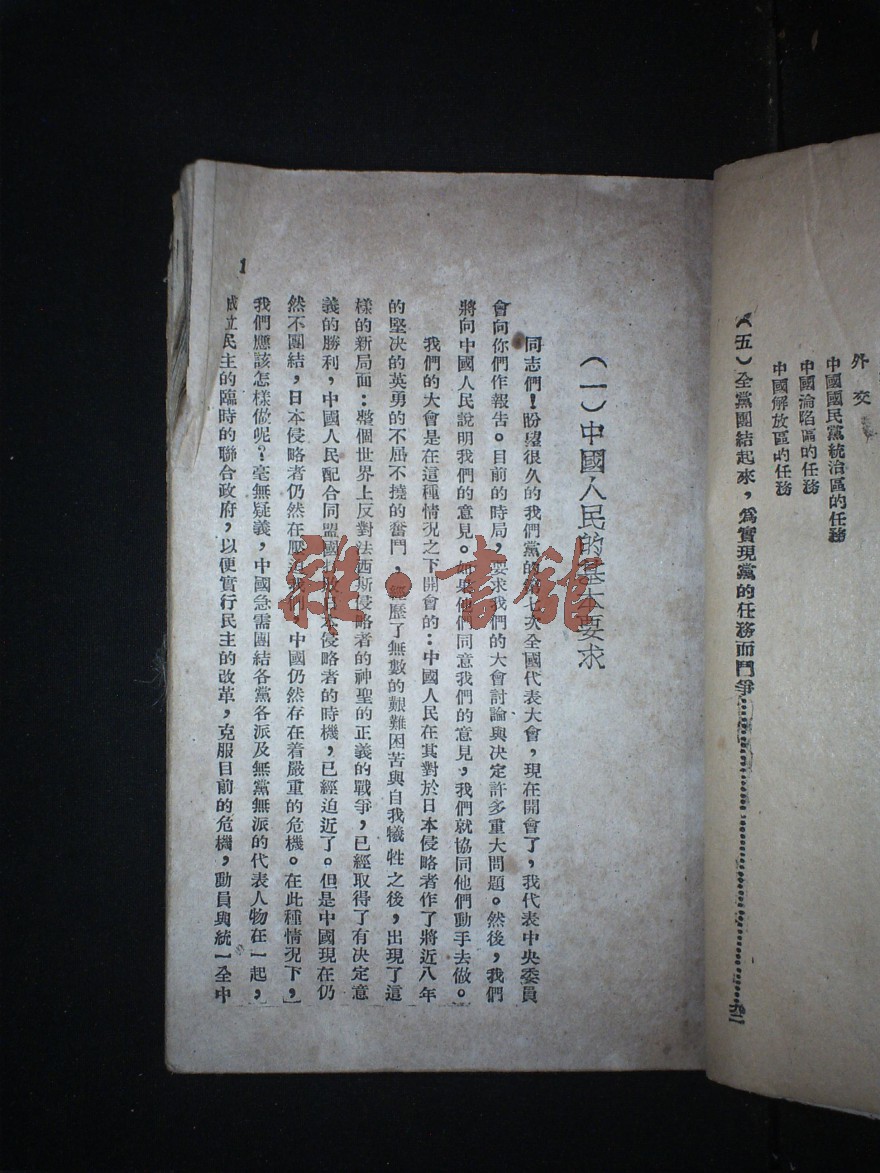 外交
中國國民黨統治區的任務
中國淪陷區的任務
中國解放區的任務
(五)全黨團結起來,爲實現黨的任務而鬥爭…………九二
(一)中國人民的基本要求
同志們!盼望很久的我們黨的第七次全國代表大會,現在開會了,我代表中央委員
會向你們作報告。目前的時局,要求我們的大會討論與決定許多重大問題。然後,我們
將向中國人民說明我們的意見。如果他們同意我們的意見,我們就協同他們動手去做。
我們的大會是在這種情况之下開會的:中國人民在其對於日本侵略者作了將近八年
的堅決的英勇的不屈不撓的奮鬥,經歷了無數的艱難困苦與自我犧牲之後,出現了這
樣的新局面:整個世界上反對法西斯侵略者的神聖的正義的戰爭,已經取得了有決定意
義的勝利,中國人民配合同盟國打敗日本侵略者的時機,已經迫近了。但是中國現在仍
然不團結,日本侵略者仍然在壓迫我們,中國仍然存在着嚴重的危機。在此種情况下,
我們應該怎樣做呢?毫無疑義,中國急需團結各黨各派及無黨無派的代表人物在一起,
成立民主的臨時的聯合政府,以便實行民主的改革,克服目前的危機,動員與統一全中
1
雜·書館